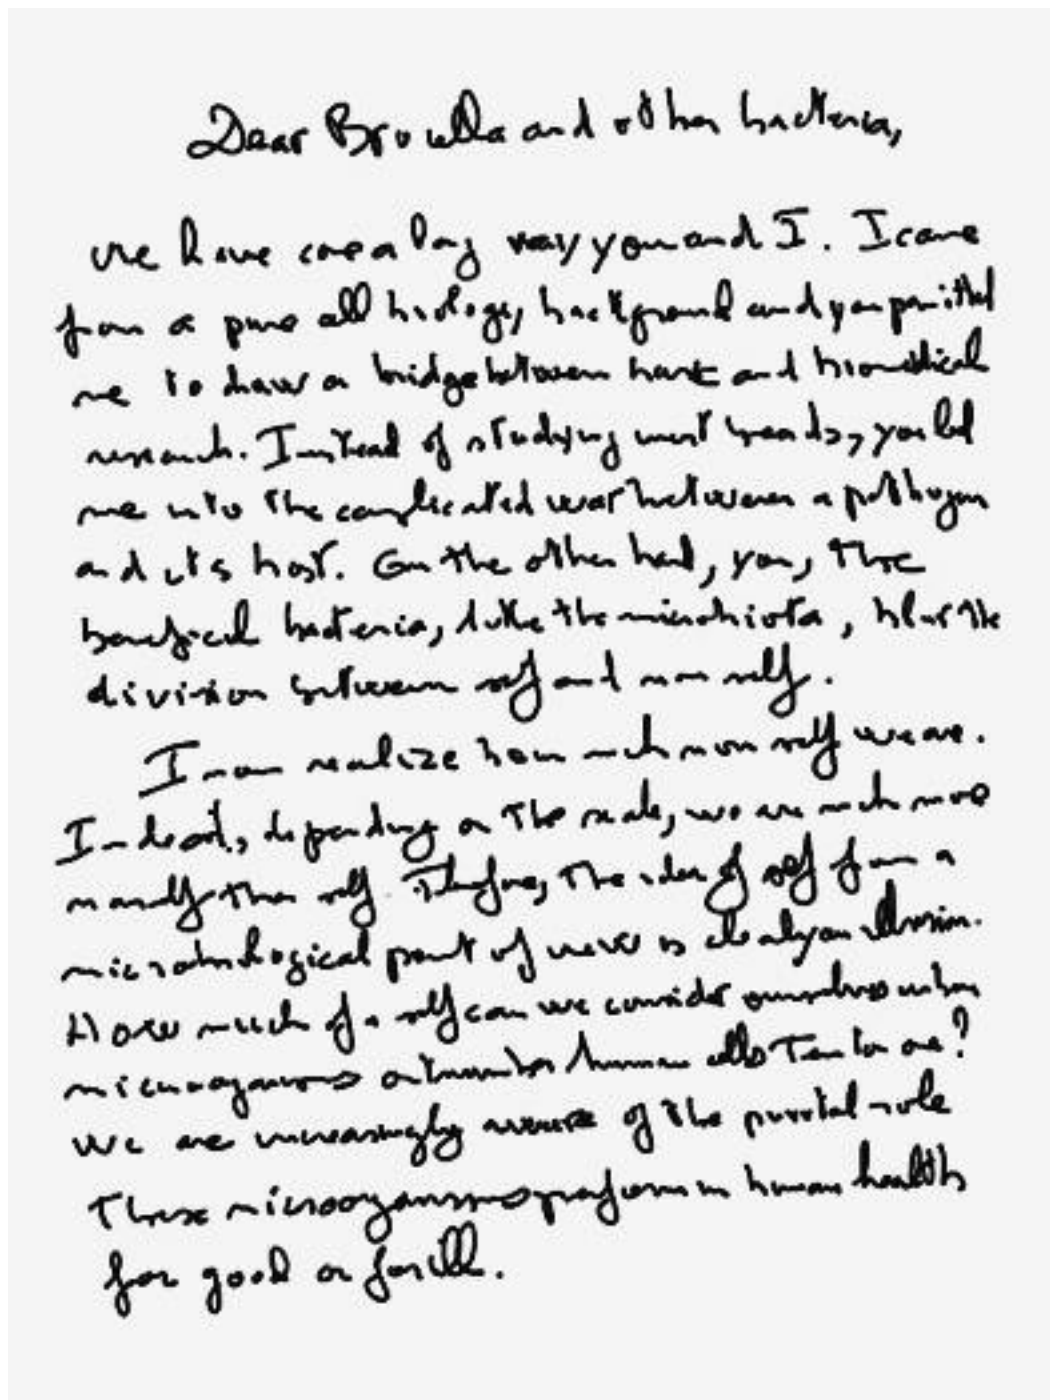 Dear Brucella and other bacteria,
We have come a long way you and I. I came
from a pure cell biology, background and you permitted
me to draw a bridge between basic and biomedical
research. Instead of studying yeasts, you led
me into the complicated war between a pathogen
and its host. On the other hand, you, the
beneficial bacteria, like the microbiota, blur the
division between self and non self.
I now realize how much non self we are.
Indeed, depending on the scale, we are much more
nonself than self. Therefore, the idea of self from a
microbiological point of view is clearly an illusion.
How much of a self can we consider ourselves when
microorganisms outnumber human cells Ten to one?
We are increasingly aware of the pivotal role
These microorganisms perform in human health
for good or for ill.